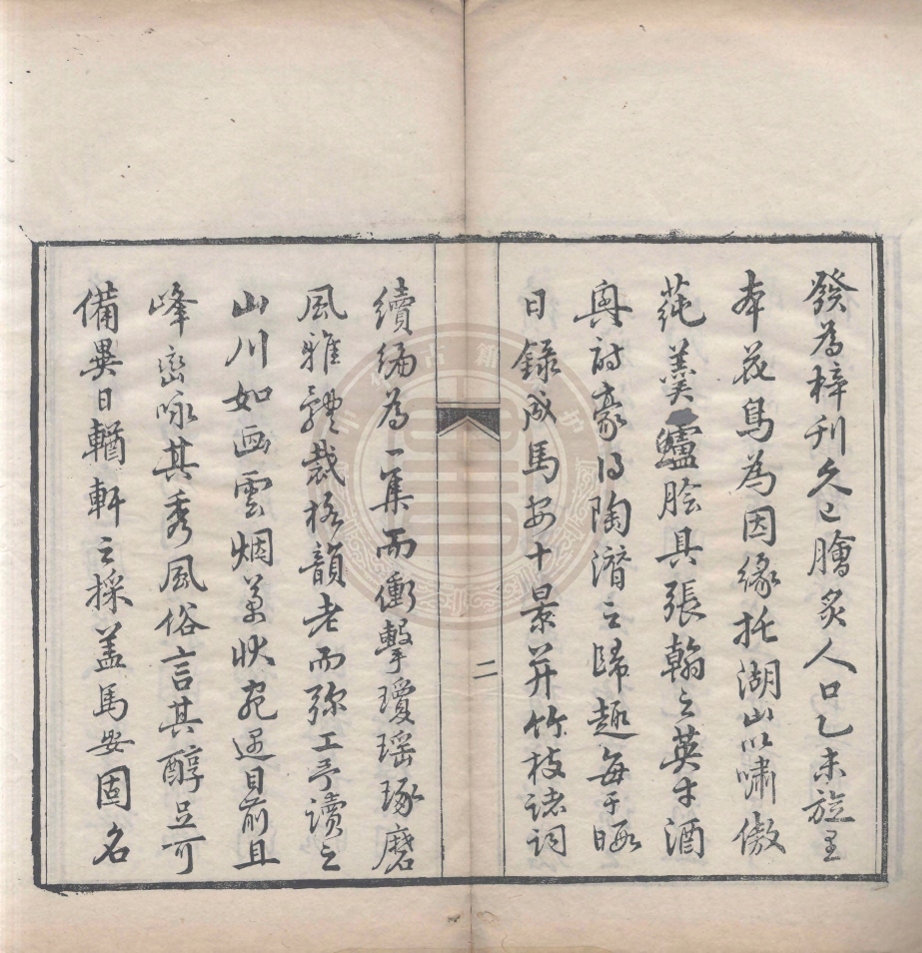 發為梓刊久已膾炙人口乙未旋里
本花鳥為因緣托湖山以嘯傲
蒓羹鱸膾具張翰之英才酒
興詩豪得陶潛之歸趣每于暇
日錄成馬安十景并竹枝諸詞
二
續編為一集而衝擊瓊瑤琢磨
風雅體裁格韻老而弥工予讀之
山川如画雲烟萬狀宛遇目前且
峰巒咏其秀風俗言其醇足可
備異日輶軒之採盖馬安固名